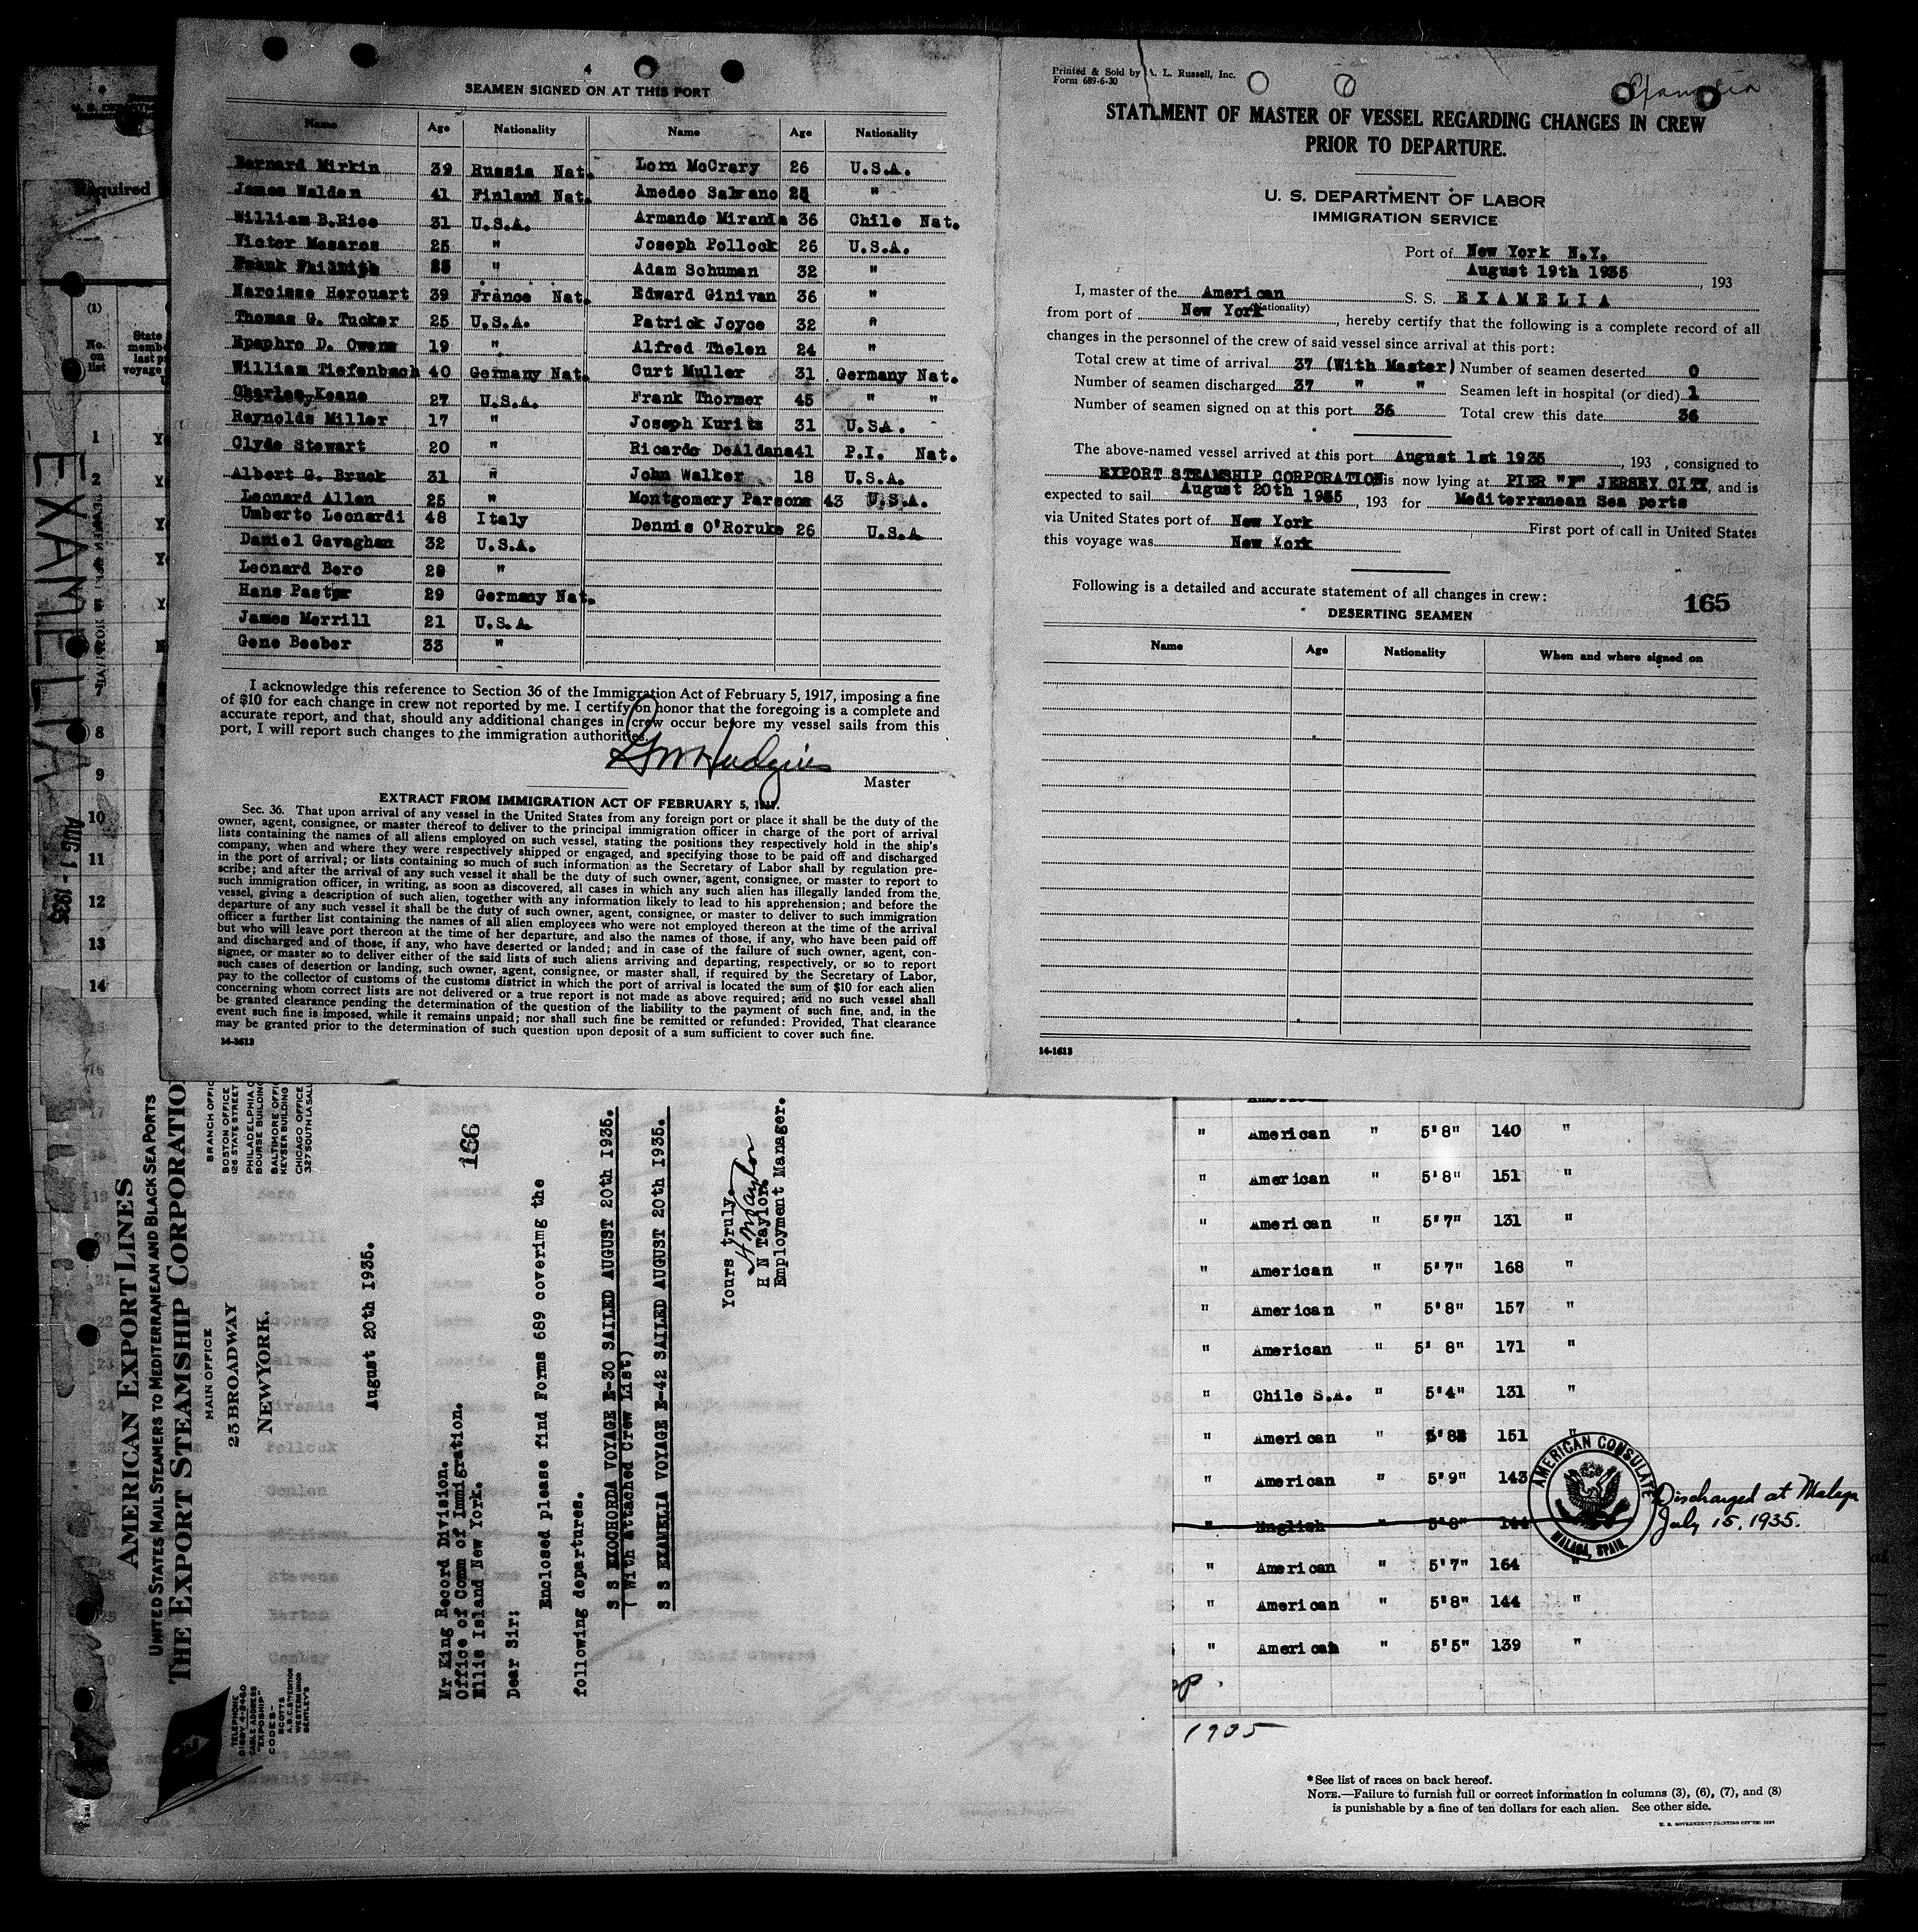 4
SEAMEN SIGNED ON AT THIS PORT
Name Age Nationality Name Age Nationality
Bernard Mirkin 39 Russia Nat. Lorn McCrary 26 U.S.A.
James Walden 41 Finland Nat. Amedeo Salvano "
William B.Rice 31 U.S.A. Armando Miranda 36 Chile Nat.
Victor Mesaros 25 " Joseph Pollock 26 U.S.A.
Frank " Adam Schuman 32 "
Narcisse Herouart 39 France Nat. Edward Ginivan 36 "
Thomas G. Tucker 25 U.S.A. Patrick Joyce 32 "
Epaphro D. Owens 19 " Alfred Thelen 24 "
William Tiefenbach 40 Germany Nat. Curt Muller 31 Germany Nat.
Keane 27 U.S.A. Frank Thormer 45 " "
Reynolds Miller 17 " Joseph Kurits 31 U.S.A.
Clyde Stewart 20 " Ricardo DeAldana 41 P.I. Nat.
Albert G. Bruck 31 " John Walker 18 U.S.A.
Leonard Allen 25 " Montgomery Parsons 43 U.S.A.
Umberto Leonardi 48 Italy Dennis O'Roruke 26 U.S.A
Daniel Gavaghan 32 U.S.A.
Leonard Bero 28 "
Hans Pastor 29 Germany Nat.
James Merrill 21 U.S.A
Gene Beeber 33 "
I acknowledge this reference to Section 36 of the Immigration Act of February 5, 1917, imposing a fine
of $10 for each change in crew not reported by me. I certify on honor that the foregoing is a complete and
accurate report, and that, should any additional changes in crew occur before my vessel sails from this
port, I will report such changes to the immigration authorities.
Hudgins
Master
EXTRACT FROM IMMIGRATION ACT OF FEBRUARY 5, 1917.
Sec. 36. That upon arrival of any vessel in the United States from any foreign port or place it shall be the duty of the
owner, agent, consignee, or master thereof to deliver to the principal immigration officer in charge of the port of arrival
lists containing the names of all aliens employed on such vessel, stating the positions they respectively hold in the ship's
company, when and where they were respectively shipped or engaged, and specifying those to be paid off and discharged
in the port of arrival; or lists containing so much of such information as the Secretary of Labor shall by regulation pre-
scribe; and after the arrival of any such vessel it shall be the duty of such owner, agent, consignee, or master to report to
such immigration officer, in writing, as soon as discovered, all cases in which any such alien has illegally landed from the
vessel, giving a description of such alien, together with any information likely to lead to his apprehension; and before the
departure of any such vessel it shall be the duty of such owner, agent, consignee, or master to deliver to such immigration
officer a further list containing the names of all alien employees who were not employed thereon at the time of the arrival
but who will leave port thereon at the time of her departure, and also the names of those, if any, who have been paid off
and discharged and of those, if any, who have deserted or landed; and in case of the failure of such owner, agent, con-
signee, or master so to deliver either of the said lists of such aliens arriving and departing, respectively, or so to report
such cases of desertion or landing, such owner, agent, consignee, or master shall, if required by the Secretary of Labor,
pay to the collector of customs of the customs district in which the port of arrival is located the sum of $10 for each alien
concerning whom correct lists are not delivered or a true report is not made as above required; and no such vessel shall
be granted clearance pending the determination of the question of the liability to the payment of such fine, and, in the
event such fine is imposed, while it remains unpaid; nor shall such fine be remitted or refunded: Provided, That clearance
may be granted prior to the determination of such question upon deposit of a sum sufficient to cover such fine.
14-1613
Printed & Sold by A. L. Russell, Inc.
Form 689-6-30
Examelia
STATEMENT OF MASTER OF VESSEL REGARDING CHANGES IN CREW
PRIOR TO DEPARTURE.
U. S. DEPARTMENT OF LABOR
IMMIGRATION SERVICE
Port of New York N.Y.
August 19th 1935 , 193
I, master of the American S. S. EXAMELIA
(Nationality)
from port of New York , hereby certify that the following is a complete record of all
changes in the personnel of the crew of said vessel since arrival at this port:
Total crew at time of arrival 37 (With Master) Number of seamen deserted 0
Number of seamen discharged 37 " " Seamen left in hospital (or died) 1
Number of seamen signed on at this port 36 Total crew this date 36
The above-named vessel arrived at this port August 1st 1935 , 193 , consigned to
EXPORT STEAMSHIP CORPORATION is now lying at PIER "F" JERSEY CITY, and is
expected to sail August 20th 1935 , 193 for Mediterranean Sea ports
via United States port of New York First port of call in United States
this voyage was New York
Following is a detailed and accurate statement of all changes in crew:
165
DESERTING SEAMEN
Name Age Nationality When and where signed on
14-1613
Required
EXAMELIA
AUG 1 - 1935
(1)
No. on list
State
1
2
8
9
10
11
12
13
14
AMERICAN EXPORT LINES
UNITED STATES MAIL STEAMERS TO MEDITERRANEAN AND BLACK SEA PORTS
THE EXPORT STEAMSHIP CORPORATION
MAIN OFFICE
25 BROADWAY
NEW YORK.
BOSTON OFFICE
126 STATE STREET
BOURSE BUILDING
KEYSER BUILDING
CHICAGO OFFICE
TELEPHONE
DIGBY 4-8460
CABLE ADDRESS
"EXPOSHIP"
CODES-
SCOTTS
WESTERN UNION
BENTLEY'S
August 20th 1935.
166
Mr King Record Division.
Office of Comm of Immigration.
Ellis Island New York.
Dear Sir:
Enclosed please find Forms 689 covering the
following departures.
S S EXOCHORDA VOYAGE E-30 SAILED AUGUST 20th 1935.
( With attached Crew List)
S S EXAMELIA VOYAGE E-42 SAILED AUGUST 20th 1935.
Yours truly,
H N Taylor
H N Taylor.
Employment Manager.
" American " 5'8" 140 "
" American " 5'8" 151 "
" American " 5'7" 131 "
" American " 5'7" 168 "
" American " 5'8" 157 "
" American " 5' 8" 171 "
" Chile S.A. " 5'4" 131 "
" American " 5'8" 151 "
" American " 5'9" 143
" English " 5'8" 144
" American " 5'7" 164 "
" American " 5'8" 144 "
" American " 5'5" 139 "
AMERICAN CONSULATE
MALAGA, SPAIN.
Discharged at Malaga
July 15, 1935.
*See list of races on back hereof.
NOTE.—Failure to furnish full or correct information in columns (3), (6), (7), and (8)
is punishable by a fine of ten dollars for each alien. See other side.
U. S. GOVERNMENT PRINTING OFFICE